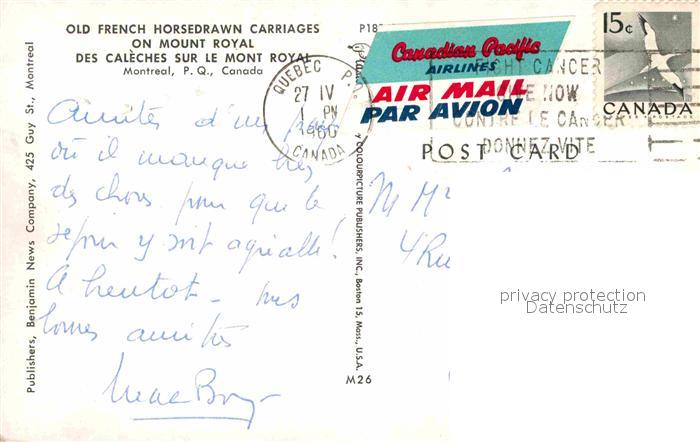 OLD FRENCH HORSEDRAWN CARRIAGES
ON MOUNT ROYAL
DES CALÈCHES SUR LE MONT ROYAL
Montreal, P. Q., Canada
P18
Canadian Pacific
AIRLINES
AIR MAIL
PAR AVION
QUEBEC P.Q.
27 IV
1 PM
1960
CANADA
15c
CANADA
CANCER
NOW
CONTRE LE CANCER
DONNEZ VITE
POST CARD
Publishers, Benjamin News Company, 425 Guy St., Montreal
Amitiés d'un pays
où il manque
des choses pour que le
séjour y soit agréable!
A bientot - mes
bonnes amitiés
COLOURPICTURE PUBLISHERS, INC., Boston 15, Mass., U.S.A.
M26
M Mr
4 Ru
privacy protection
Datenschutz